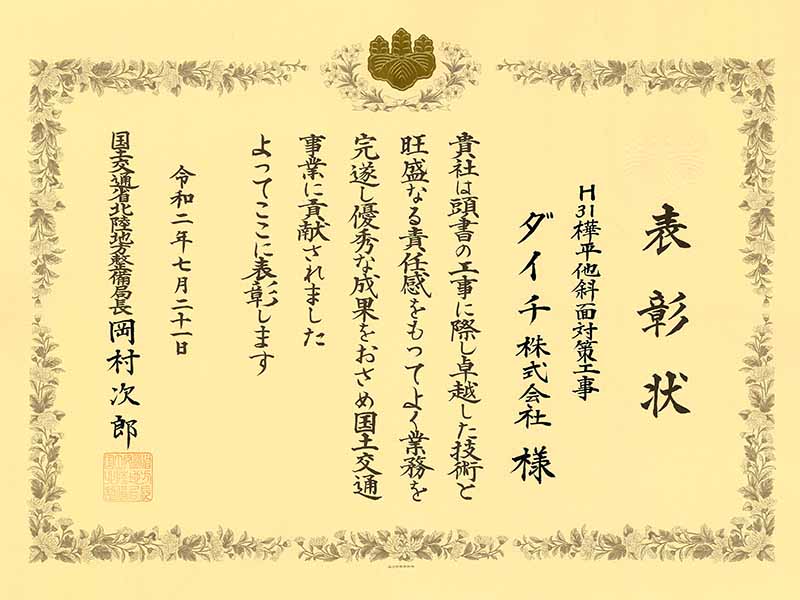 表彰状
H31樺平他斜面対策工事
ダイチ株式会社 様
貴社は頭書の工事に際し卓越した技術と
旺盛なる責任感をもってよく業務を
完遂し優秀な成果をおさめ国土交通
事業に貢献されました
よってここに表彰します
令和二年七月二十一日
国土交通省北陸地方整備局長 岡村次郎